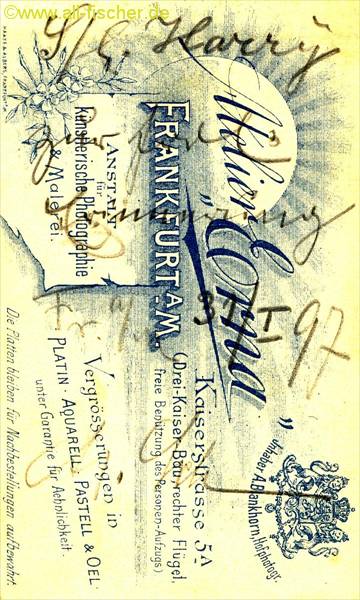 www.all-fischer.de
Atelier "Erna"
FRANKFURT A/M.
ANSTALT
für
Künstlerische Photographie
& Malerei.
Kaiserstrasse 5A
(Drei-Kaiser-Bau, rechter Flügel,
freie Benützung des Personen-Aufzugs)
Vergrösserungen in
PLATIN-AQUARELL, PASTELL & OEL
unter Garantie für Aehnlichkeit.
Die Platten bleiben für Nachbestellungen aufbewahrt
Inhaber A. Blankhorn, Hofphotogr.
Harry
zur
Erinnerung
31 I 97